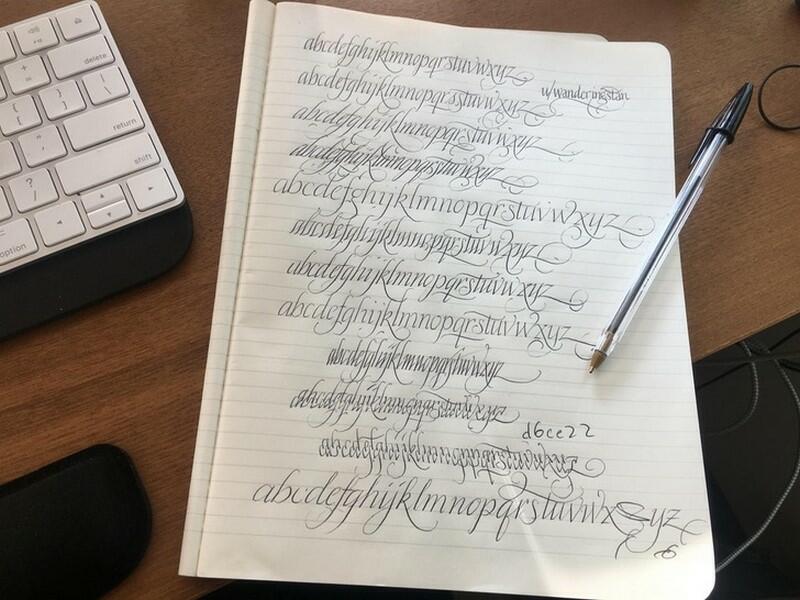 delete
return
shift
option
abcdefghijklmnopqrstuvwxyz
u/wanderingstan
abcdefghijklmnopqrstuvwxyz
abcdefghijklmnopqrstuvwxyz
abcdefghijklmnopqrstuvwxyz
abcdefghijklmnopqrstuvwxyz
abcdefghijklmnopqrstuvwxyz
abcdefghijklmnopqrstuvwxyz
abcdefghijklmnopqrstuvwxyz
abcdefghijklmnopqrstuvwxyz
abcdefghijklmnopqrstuvwxyz
d6ce22
abcdefghijklmnopqrstuvwxyz
abcdefghijklmnopqrstuvwxyz